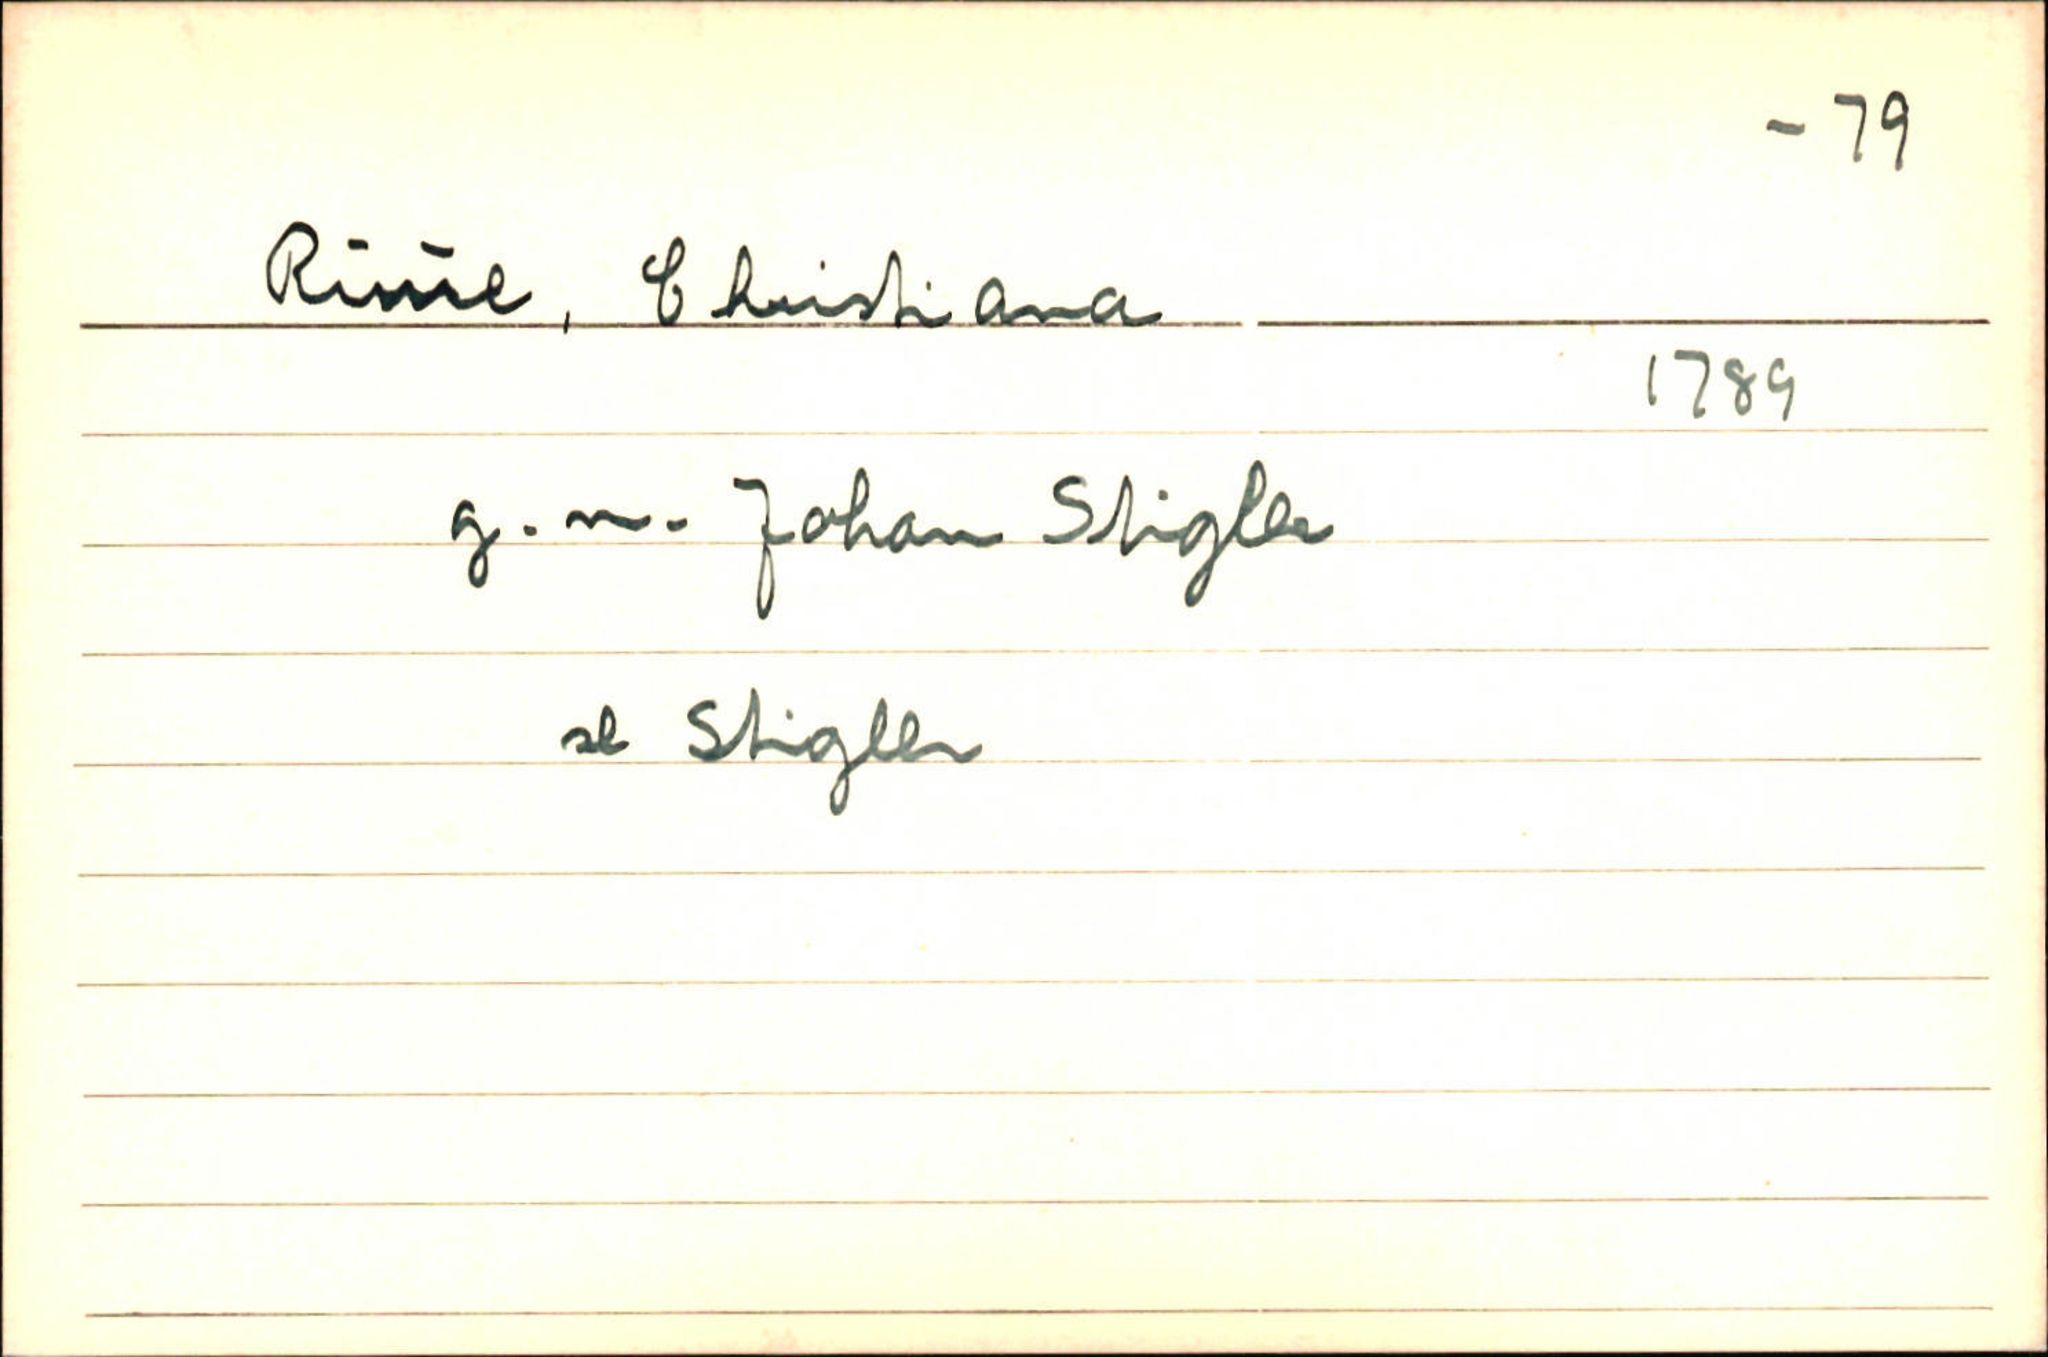 - 79
Rinne, Christiana
1789
g. m. Johan Stigler
se Stigler